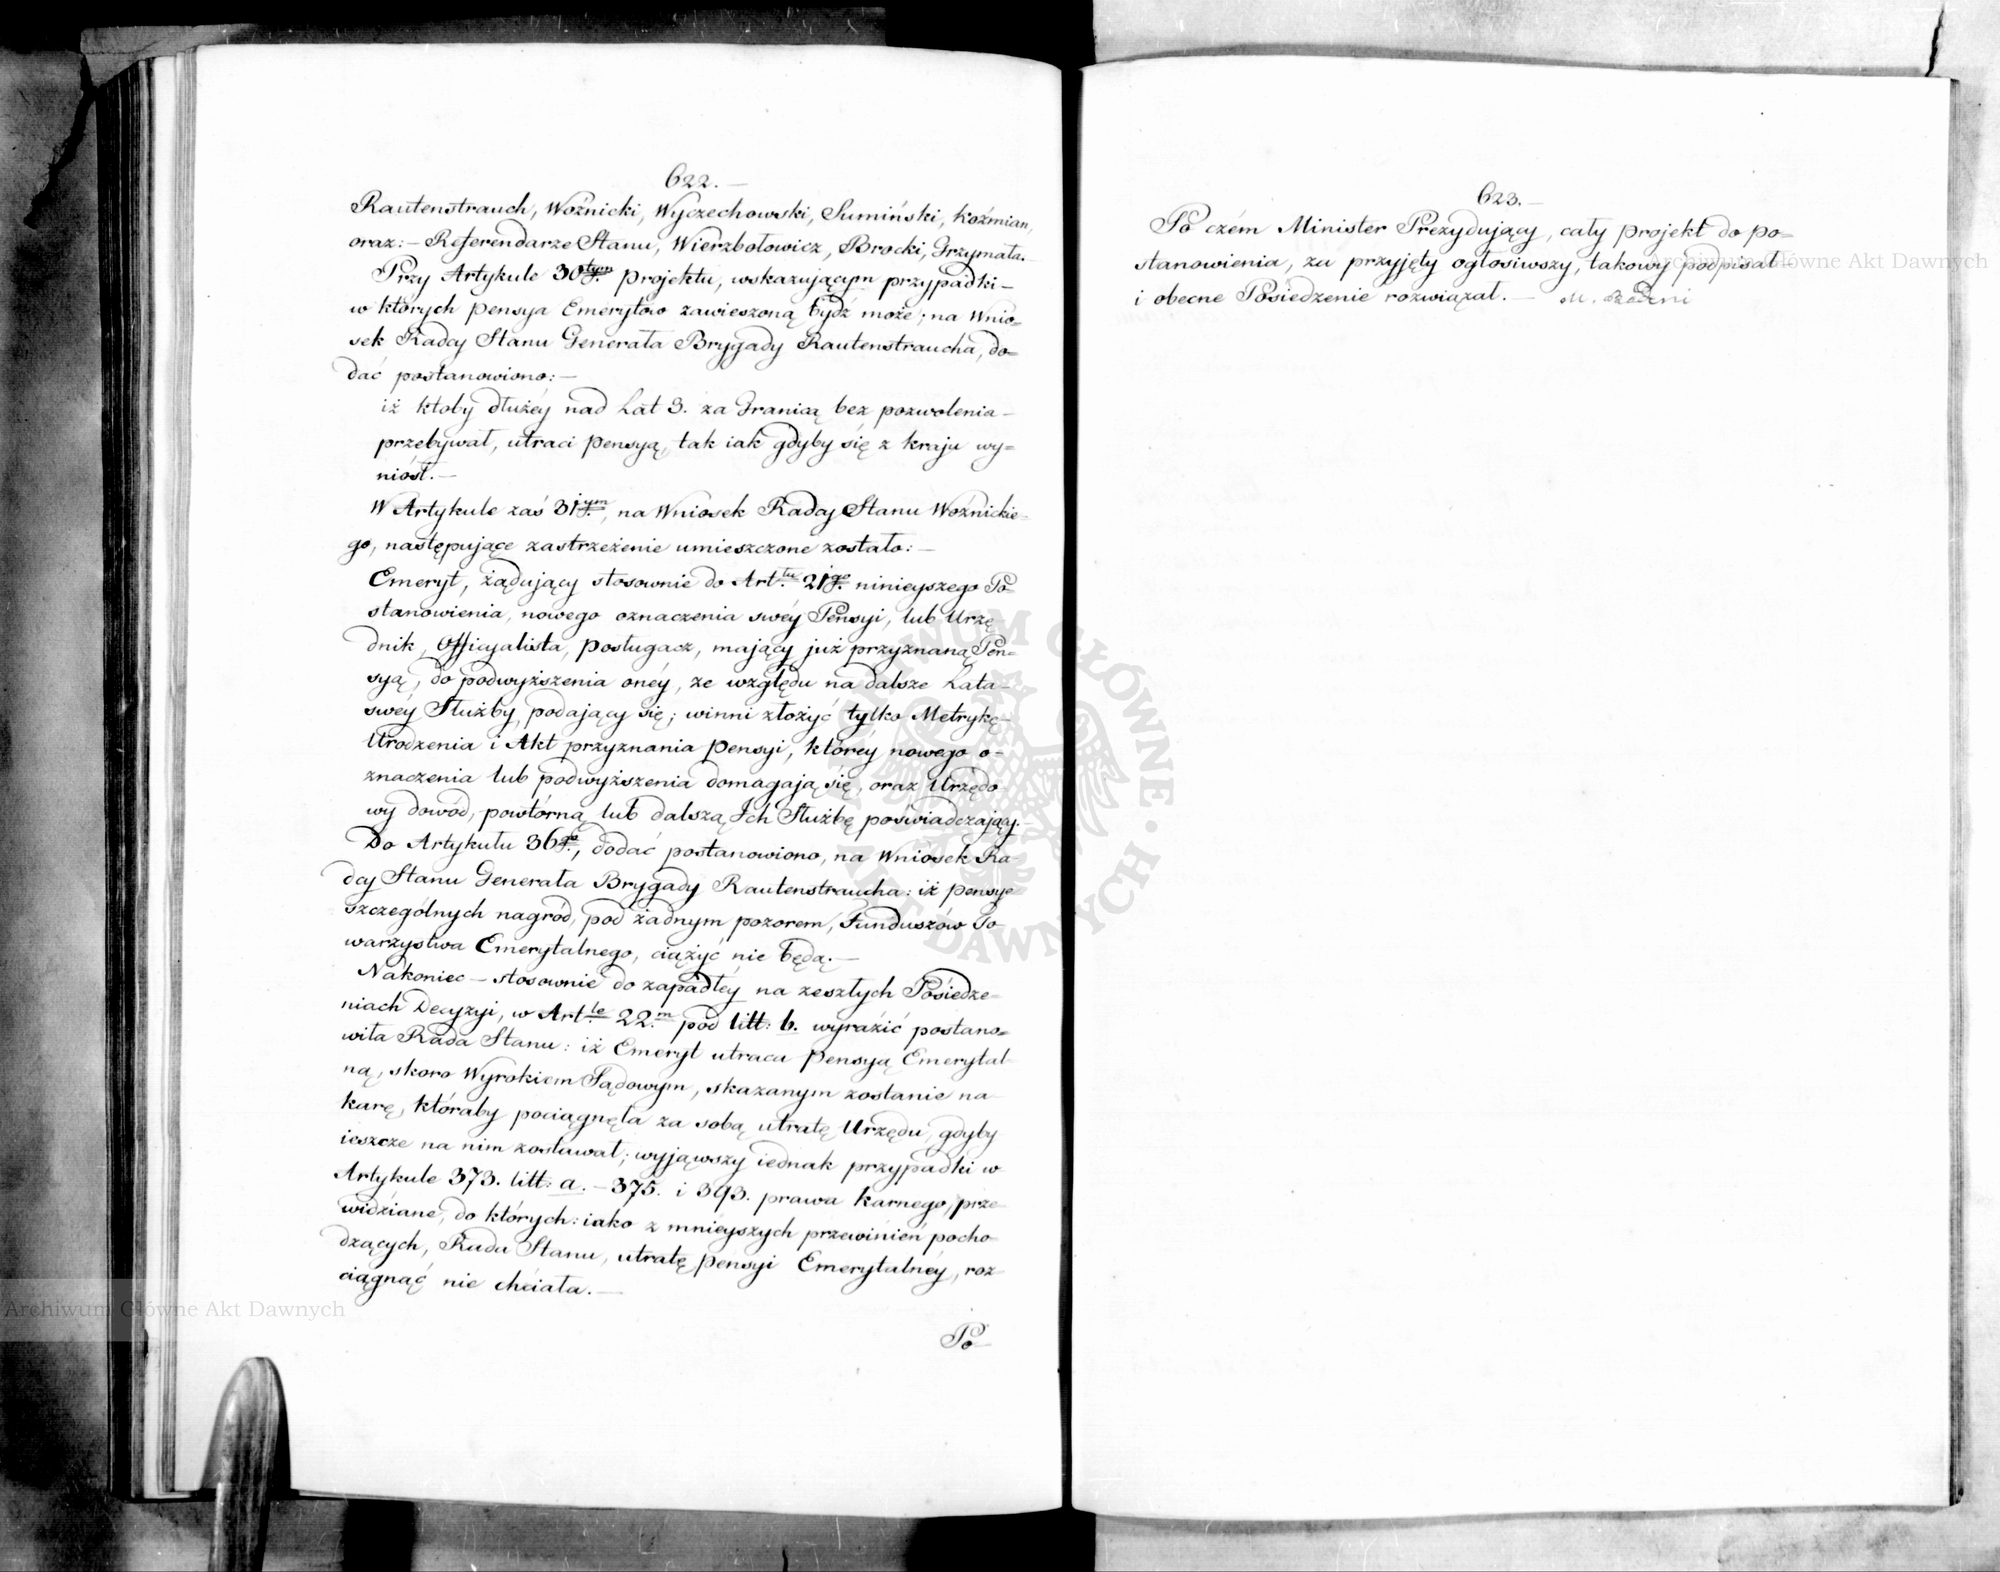 622.
Rautenstrauch, Woźnicki, Wyczechowski, Sumiński, Koźmian,
oraz:– Referendarze Stanu, Wierzbołowicz, Brocki, Grzymała.–
Przy Artykule 30tym Projektu, wskazującym przypadki–
w których pensya Emerytów zawieszoną bydź może; na Wnio=
sek Radcy Stanu Generała Brygady Rautenstraucha, do=
dać postanowiono:–
iż ktoby dłużéy nad Lat 3. za Granicą bez pozwolenia–
przebywał, utraci pensyą, tak iak gdyby się z kraju wy=
niósł.–
W Artykule zaś 31ym, na Wniosek Radcy Stanu Woźnickie=
go, następujące zastrzeżenie umieszczone zostało:–
Emeryt, żądujący stosownie do Art.tu 21go ninieyszego Po=
stanowienia, nowego oznaczenia swéy Pensyi, lub Urzę=
dnik, Officyalista, posługacz, mający już przyznaną Pen=
syą, do podwyższenia onéy, ze względu na dalsze Lata–
swéy Służby, podający się; winni złożyć tylko Metrykę–
Urodzenia i Akt przyznania pensyi, któréy nowego o–
znaczenia lub podwyższenia domagają się, oraz Urzędo
wy dowód, powtórną lub dalszą Ich Służbę poświadczający.–
Do Artykułu 36go, dodać postanowiono, na Wniosek Ra–
dcy Stanu Generała Brygady Rautenstraucha: iż pensye
szczególnych nagród, pod żadnym pozorem, Funduszów To
warzystwa Emerytalnego, ciążyć nie będą.–
Nakoniec – stosownie do zapadłéy na zeszłych Posiedze=
niach Decyzyi, w Art.le 22.m pod litt: b. wyrazić postano=
wiła Rada Stanu: iż Emeryt utraca pensyą Emerytal–
ną, skoro Wyrokiem Sądowym, skazanym zostanie na–
karę, któraby pociągnęła za sobą utratę Urzędu, gdyby
ieszcze na nim zostawał; wyjąwszy iednak przypadki w
Artykule 373. litt: a. – 375. i 393. prawa karnego, prze–
widziane, do których: iako z mnieyszych przewinień pocho–
dzących, Rada Stanu, utratę pensyi Emerytalnéy, roz–
ciągnąć nie chciała.–
Po
623.–
Po czém Minister Prezydujący, cały projekt do po=
stanowienia, za przyjęty ogłosiwszy, takowy podpisał–
i obecne Posiedzenie rozwiązał.–
Archiwum Główne Akt Dawnych
Archiwum Główne Akt Dawnych
ARCHIWUM GŁÓWNE AKT DAWNYCH